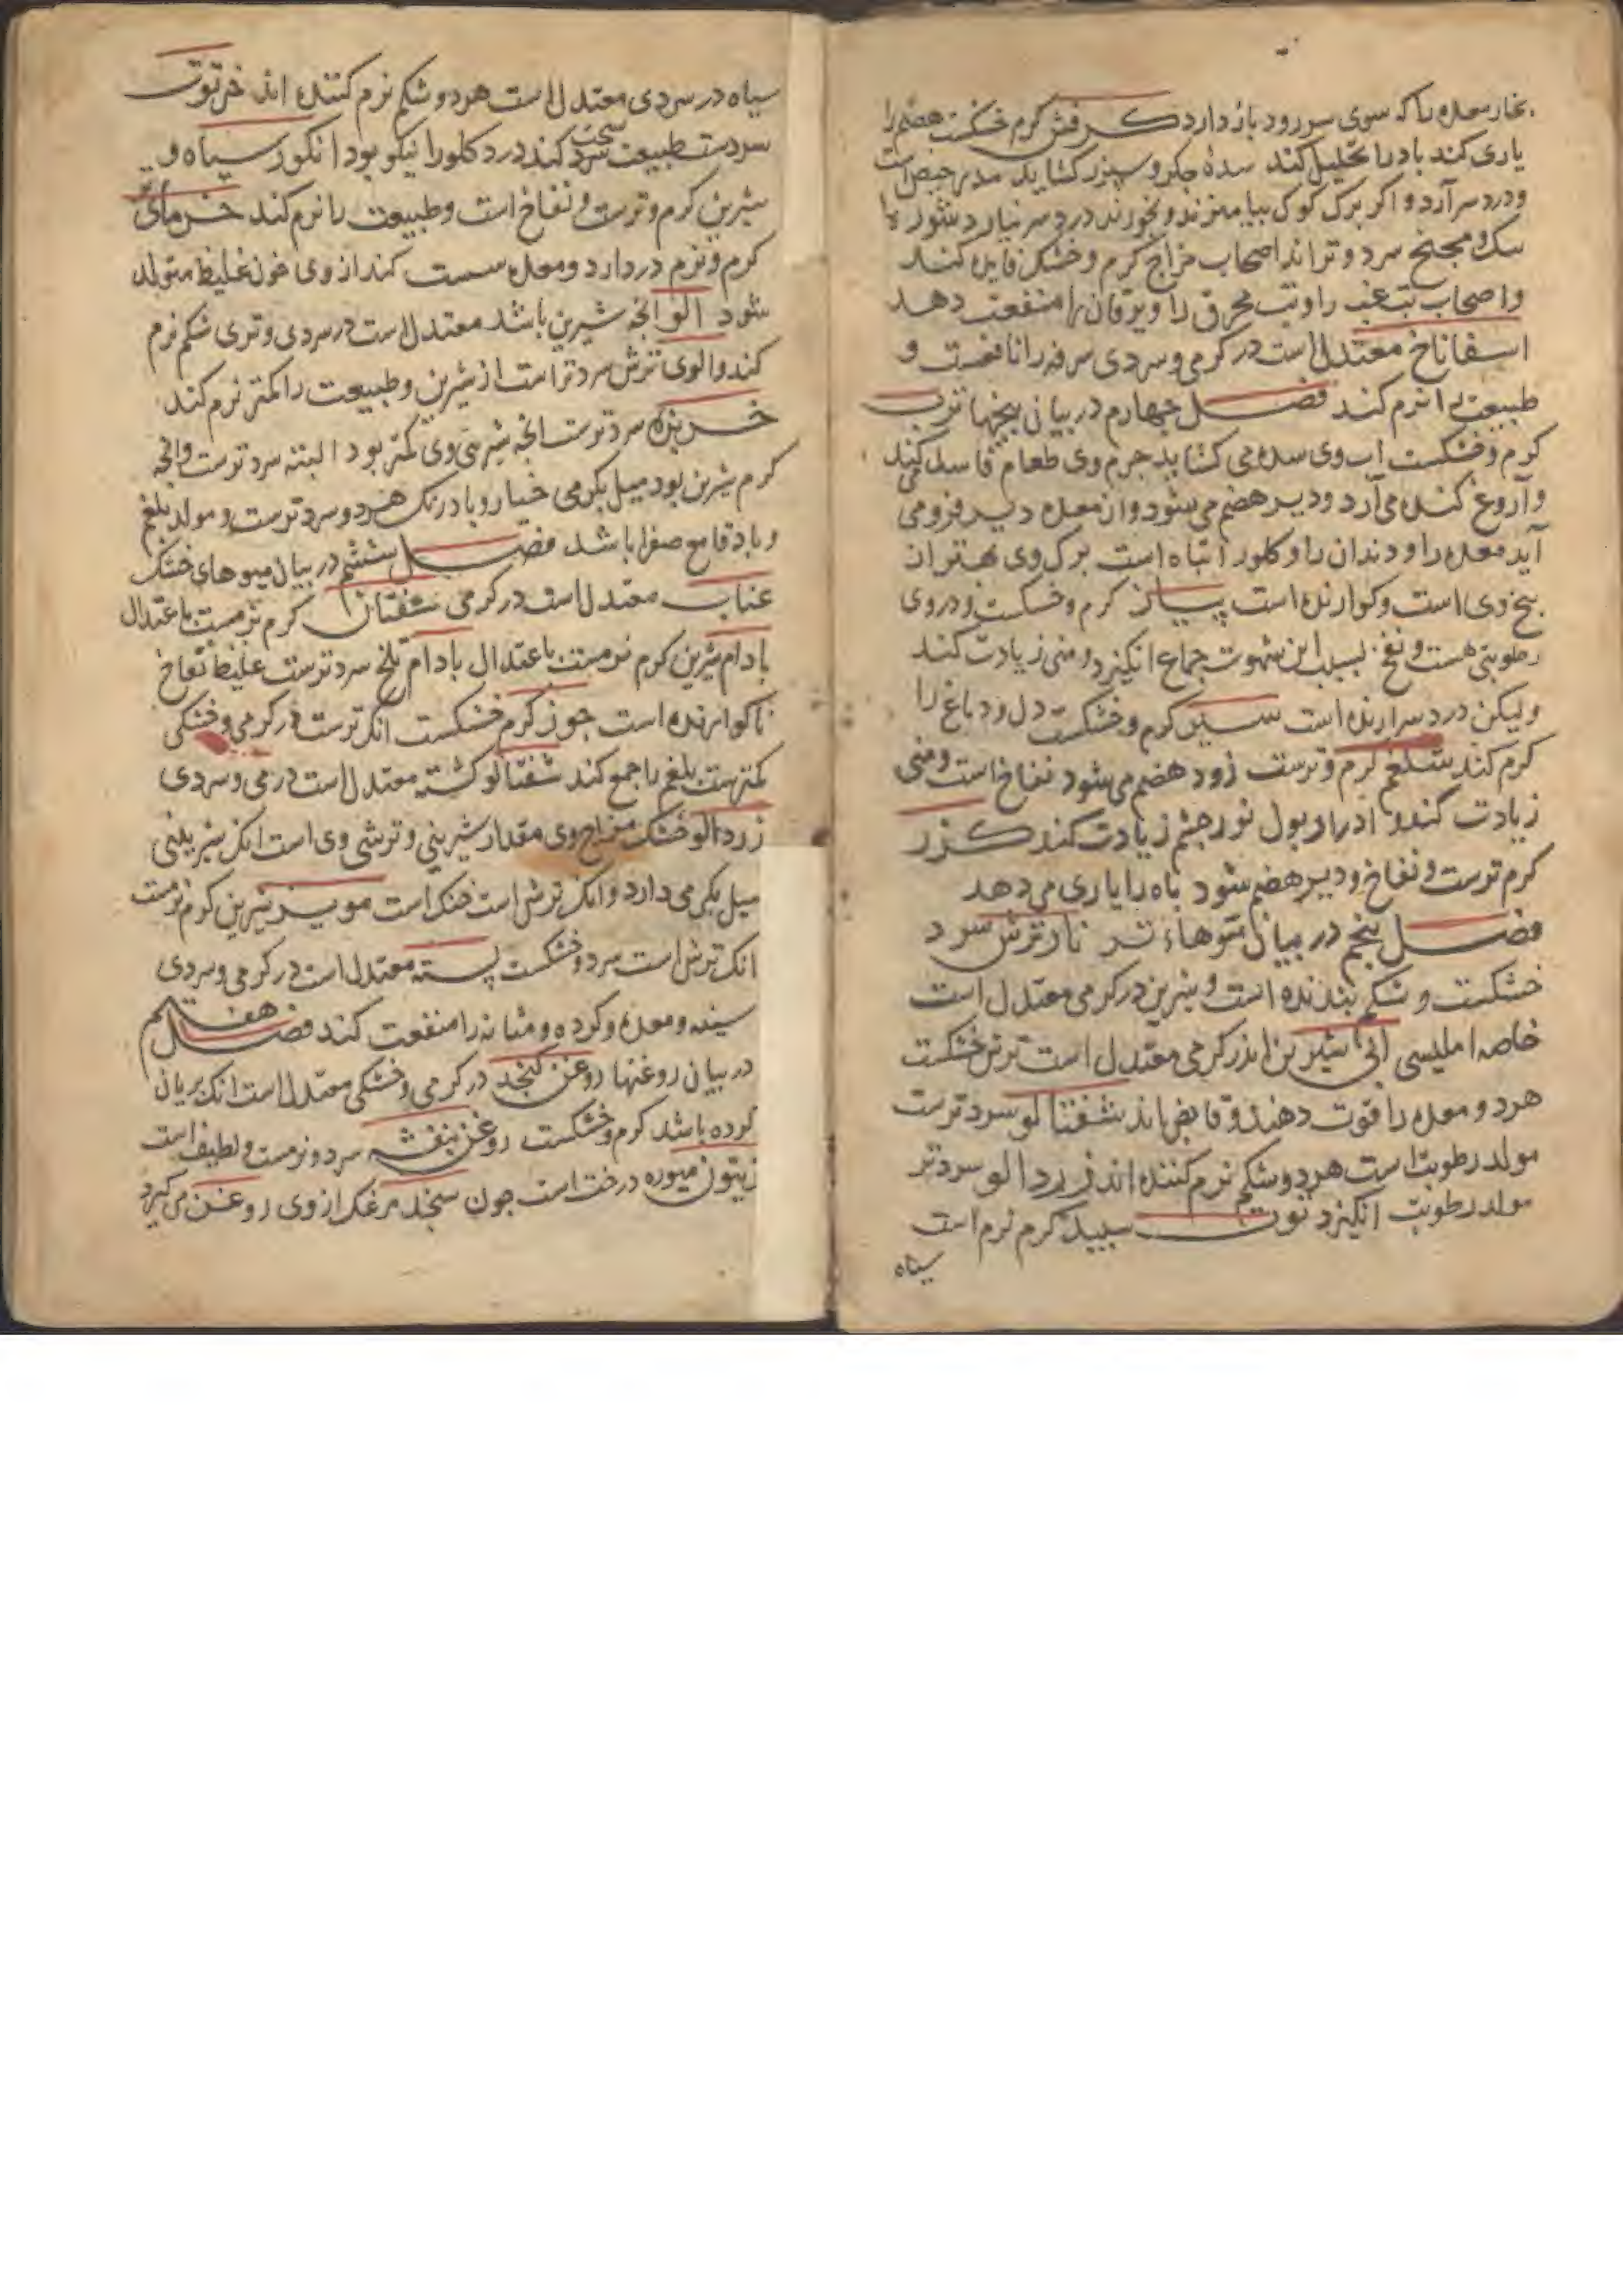 بخار معده را که سوی سر رود باز دارد کرفس گرم خشکست هضم را
یاری کند باد را تحلیل کند سدهٔ جکر و سپرز کشاید مدر حیض است
و درد سر آرد و اکر برک کوک بیامیزند و بخورند درد سر نیارد شوربا
سرد و تر اند اصحاب مزاج کرم و خشک فایده کند
و اصحاب تب غب را و تب محرق را و یرقان را منفعت دهد
اسفاناخ معتدل است در کرمی و سردی سرفه را نافعست و
طبیعت را نرم کند فصل چهارم در بیان بیخها ترب
کرم و خشکست اب وی سده می کشاید جرم وی طعام فاسد کند
و آروغ کنده می آرد و دیر هضم می شود و از معده دیر فرو می
آید معده را و دندان را و کلو را تباه است برک وی بهتر از ان
بیخ وی است و کوارنده است پیاز کرم و خشکست و در وی
رطوبتی هست و نفخ بسبب این شهوت جماع انکیزد و منی زیادت کند
ولیکن درد سر آرنده است سیر کرم و خشکست دل و دماغ را
کرم کند شلغم کرم و ترست زود هضم می شود نفاخ است و منی
زیادت کند و ادرار بول نور چشم زیادت کند کزر
کرم ترست و نفاخ و دیر هضم شود باه را یاری می دهد
فصل پنجم در بیان میوهاء تر نار ترش سرد
خشکست و شکم بندنده است و شیرین در کرمی معتدل است
خاصه املیسی آبی شیرین اندر کرمی معتدل است ترش خشکست
هر دو معده را قوت دهند و قابض اند شفتالو سرد ترست
مولد رطوبت است هر دو شکم نرم کننده اند زرد الو سرد تر
مولد رطوبت انکیزد توت سپید کرم نرم است
سیاه
سیاه در سردی معتدل است هر دو شکم نرم کننده اند خرتوت
سردست طبیعت سخت کند درد کلو را نیکو بود انکور سیاه و
شیرین کرم و ترست و نفاخ است و طبیعت را نرم کند خرمای
کرم و نرم در دارد و معده سست کند از وی خون غلیظ متولد
شود الو انچه شیرین باشد معتدل است در سردی و تری شکم نرم
کند و الوی ترش سردتر است از شیرین و طبیعت را کمتر نرم کند
خربزه سرد ترست انچه شیرینی وی کمتر بود البته سرد ترست وانچه
کرم شیرین بود میل بکرمی خیار و بادرنک هر دو سرد ترست و مولد بلغم
و باد قامع صفرا باشد فصل ششم در بیان میوهای خشک
عناب معتدل است در کرمی کرم نرمست باعتدال
بادام شیرین کرم نرمست باعتدال بادام تلخ سرد ترست غلیظ نفاخ
ناکوارنده است جوز کرم خشکست انک ترست در کرمی و خشکی
کمتر است بلغم را جمع کند شفتالو کشته معتدل است در کرمی و سردی
زرد الو خشک مزاج وی مقدار شیرینی و ترشی وی است انک شیرینی
میل بکرمی دارد و انک ترش است خنک است مویز شیرین کرم نرمست
انک ترش است سرد و خشکست پسته معتدل است در کرمی و سردی
سینه و معده و کرده و مثانه را منفعت کند فصل هفتم
در بیان روغنها روغن کنجد در کرمی و خشکی معتدل است انک بریان
کرده باشد کرم و خشکست روغن بنفشه سرد و نرمست و لطیف است
زیتون میوه درخت است چون سنجد از وی روغن می کیرد